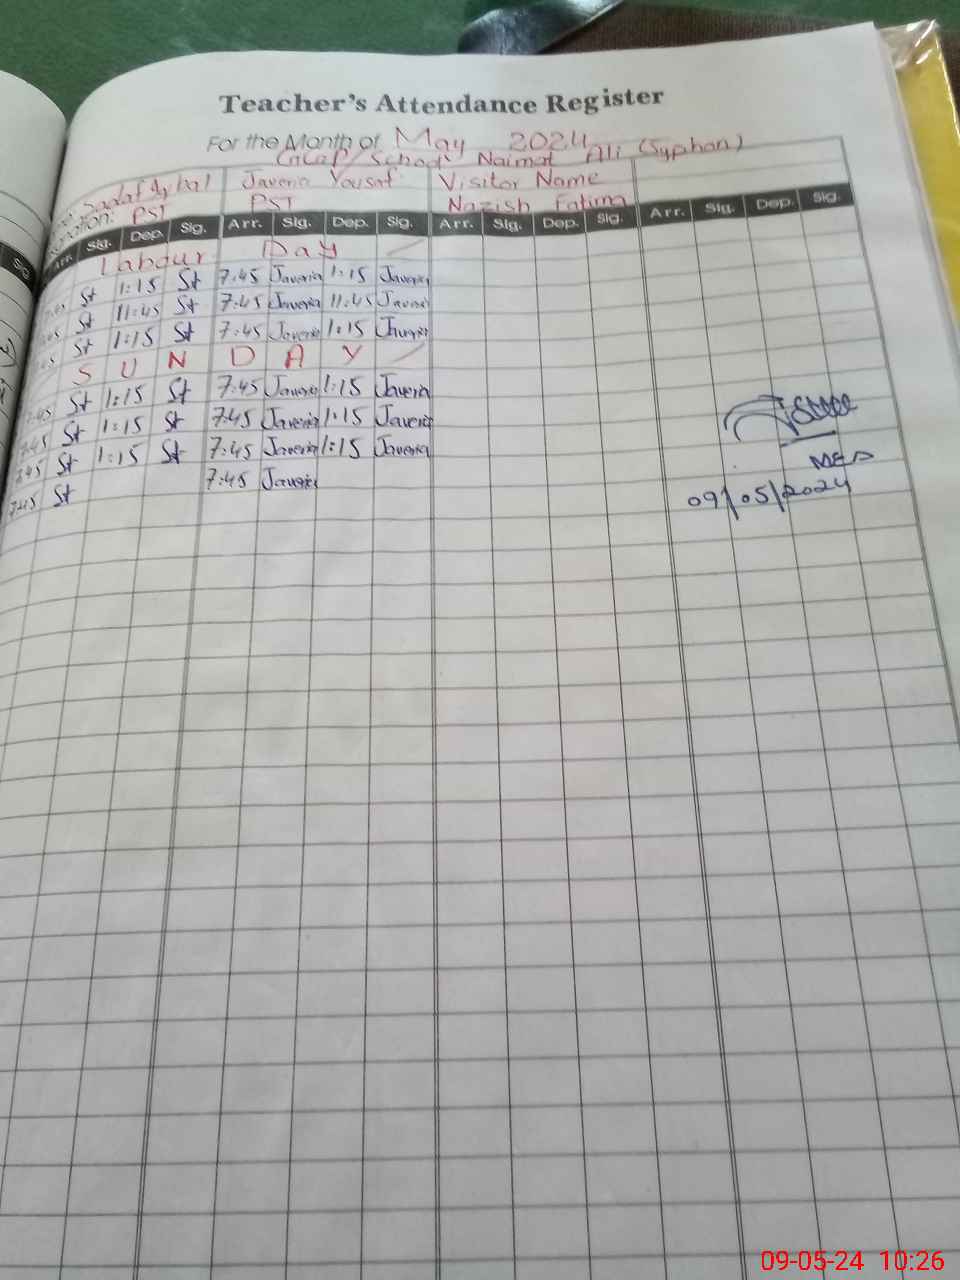 Teacher's Attendance Register
For the Month of May 2024
School Naimat Ali (Syphon)
Sadaf Iqbal Javeria Yousaf Visitor Name
PST PST Nazish Fatima
Arr. Sig. Dep. Sig. Arr. Sig. Dep. Sig. Arr. Sig. Dep. Sig. Arr. Sig. Dep. Sig.
Labour Day
7:45 St 1:15 St 7:45 Javeria 1:15 Javeria
7:45 St 11:45 St 7:45 Javeria 11:45 Javeria
7:45 St 1:15 St 7:45 Javeria 1:15 Javeria
S U N D A Y
7:45 St 1:15 St 7:45 Javeria 1:15 Javeria
7:45 St 1:15 St 7:45 Javeria 1:15 Javeria
7:45 St 1:15 St 7:45 Javeria 1:15 Javeria
7:45 St 7:45 Javeria
09/05/2024
09-05-24 10:26